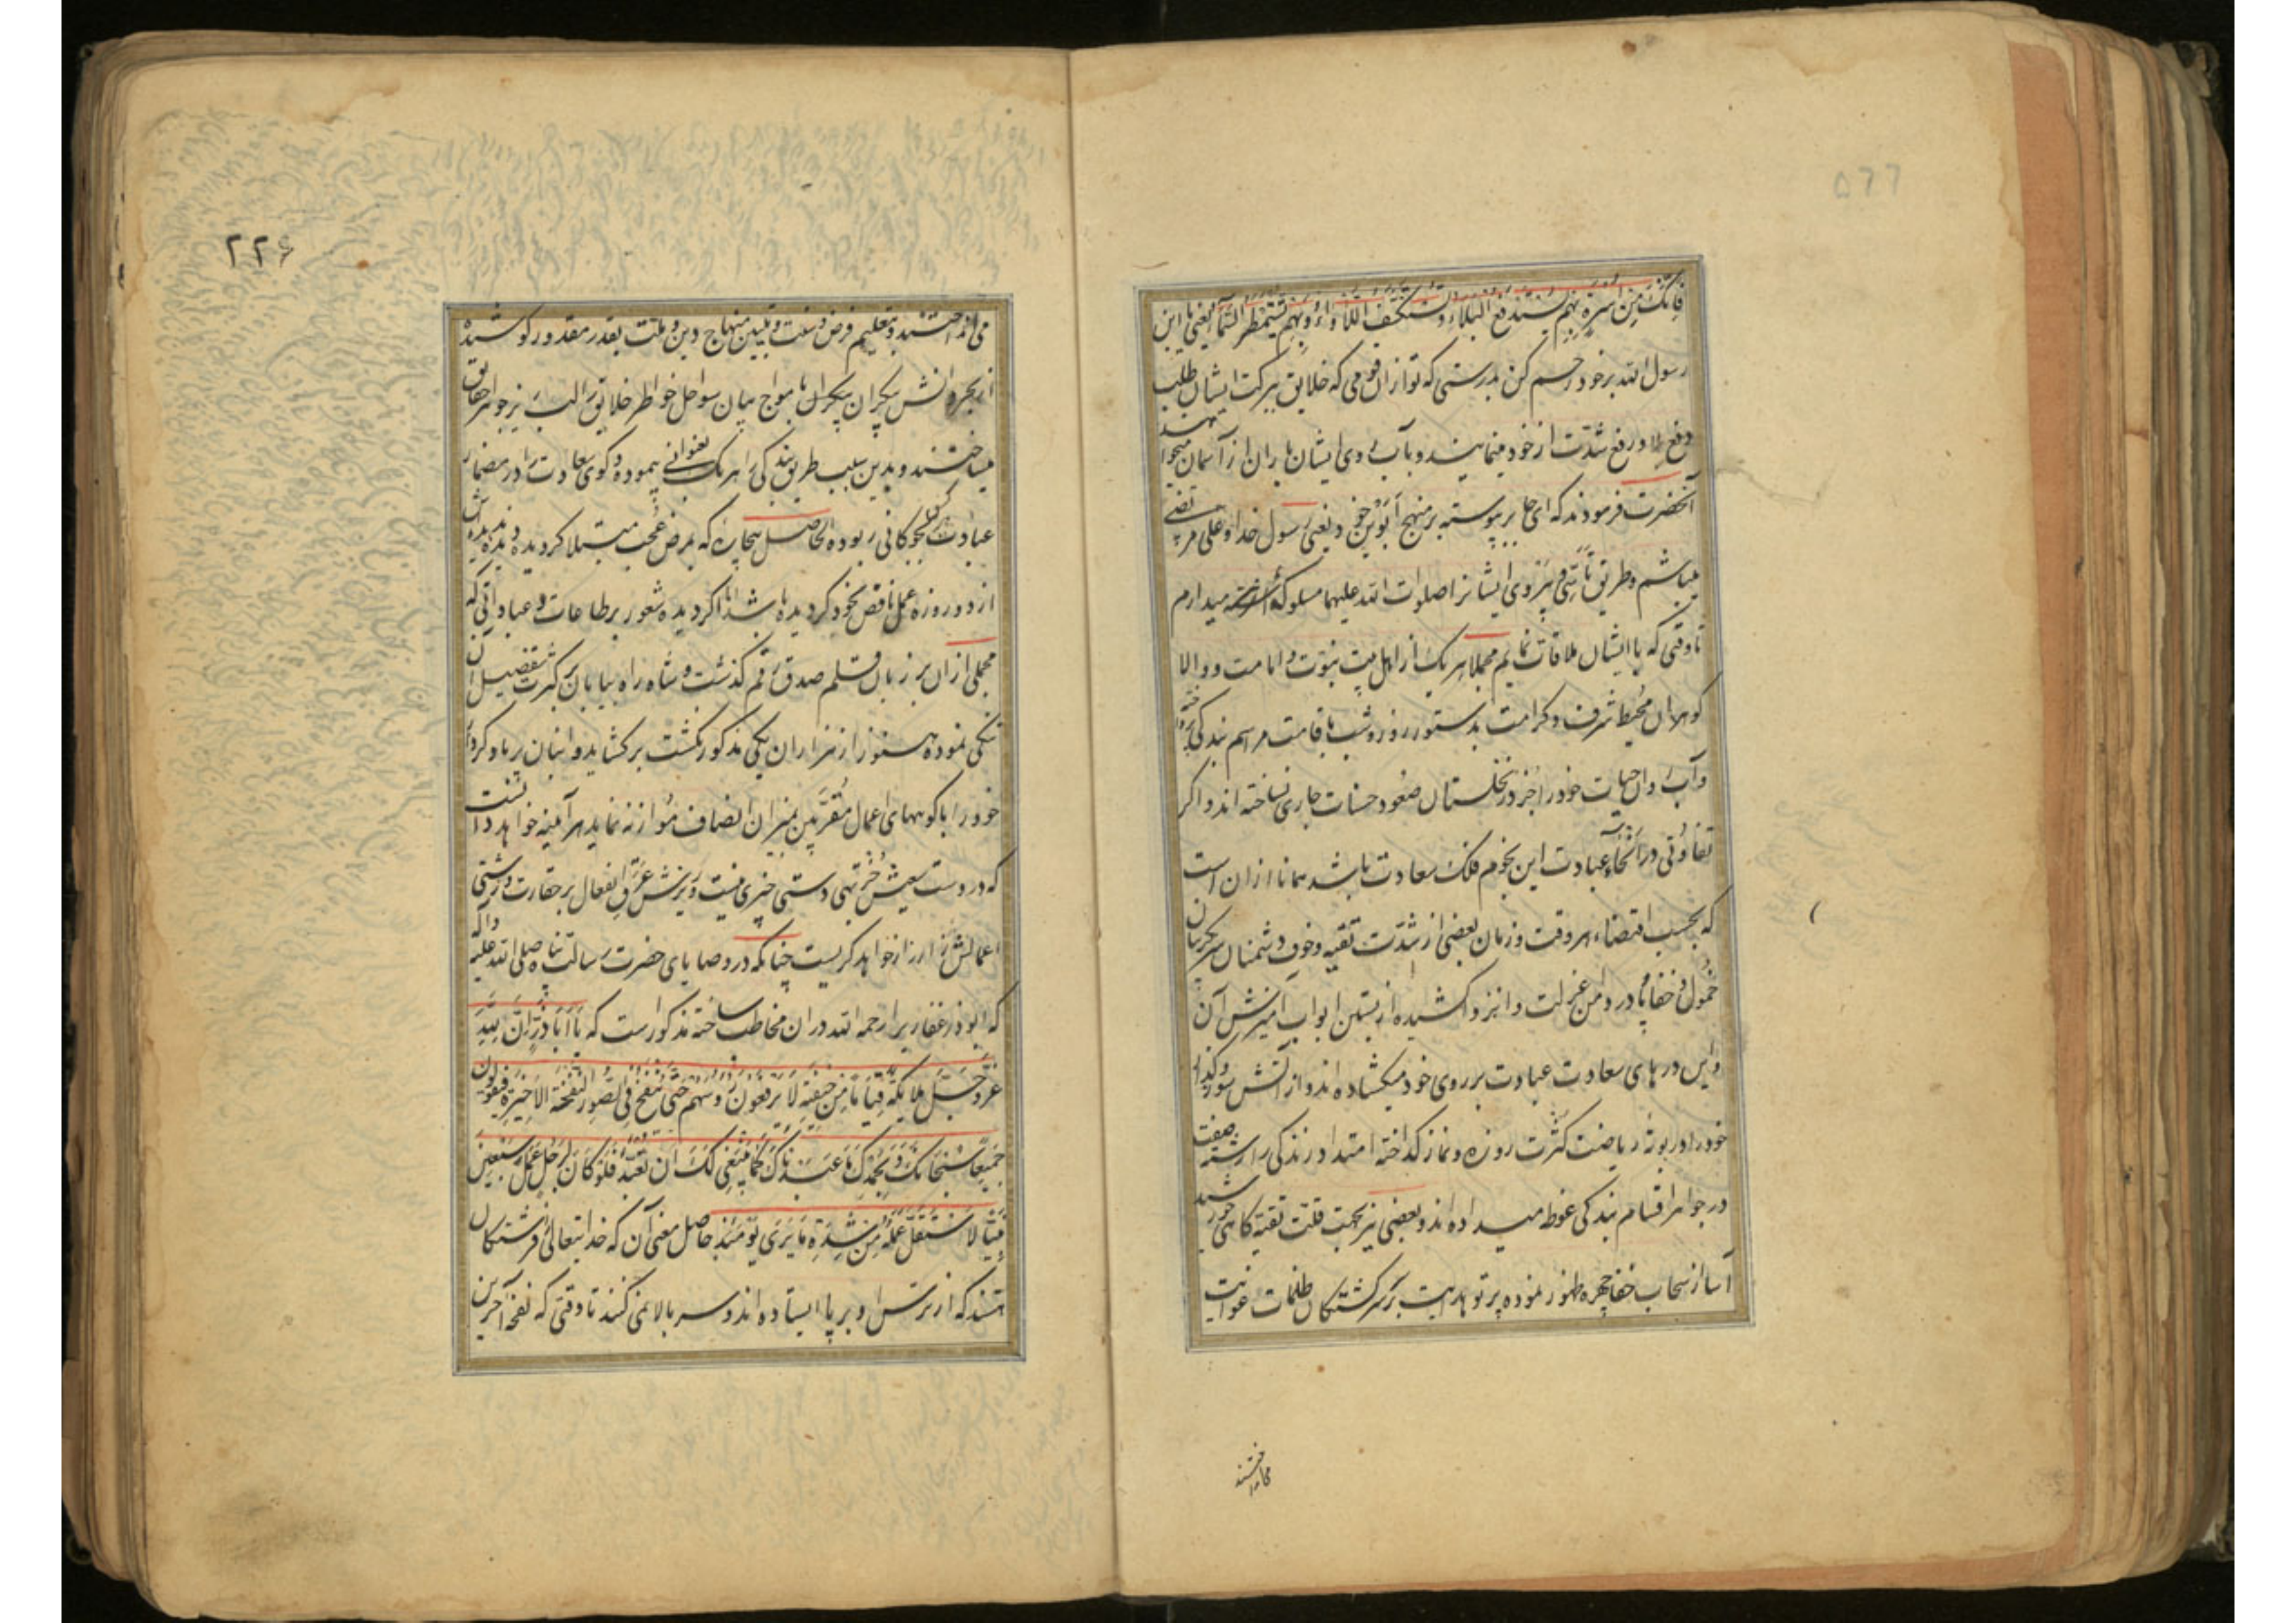 ۵۶۶
فَاِنَّکَ مِنْ اُسْرَةٍ بِهِمْ یُسْتَدْفَعُ البَلاءُ وَ تُسْتَکْشَفُ اللَّأْواءُ وَ بِهِمْ تُسْتَمْطَرُ السَّمآءُ یعنی یا ابن
رسول الله بر خود رحم کن بدرستی که تو از ان قومی که خلایق ببرکت ایشان طلب
دفع بلا و رفع شدّت از خود مینمایند و بآب روی ایشان باران از آسمان میخواهند
آنحضرت فرمودند که ای جابر پیوسته بر منهج اَبَوَین خود یعنی رسول خدا و علی مرتضی
میباشم و طریق تأسّی و پیروی ایشانرا صلوات الله علیهما مسلوک میدارم
تا وقتی که با ایشان ملاقات نمایم مجملا هر یک از اهل بیت نبوّت و امامت و والا
کوهران محیط شرف و کرامت بدستور روز و شب باقامت مراسم بندکی پرداخته
و آب روان حیات خود را جز در نخلستان صعود حسنات جاری نساخته اند و اکر
تفاوتی در اَنْحاءِ عبادت این نجوم فلک سعادت باشد همانا از ان است
که بحسب اقتضاء هر وقت و زمان بعضی از شدّت تقیه و خوف دشمنان سر بکریبان
خمول و خفا پا در دامن عزلت و انزوا کشیده از بستن ابواب آمیزش آن
و این درهای سعادت عبادت بر روی خود میکشاده اند و از آتش سوز و کداز
خود را در بوتهٔ ریاضت کثرت روزه و نماز کداخته امتداد زندکی را رشته صفت
در جواهر اقسام بندکی غوطه میداده اند و بعضی نیز بجهت قلّت تقیّه کاهی خورشید
آسا از سحاب خفا چهره ظهور نموده پرتو هدایت بر سرکشتکان ظلمات غوایت
می انداختند
۲۲۶
می انداختند و بتعلیم فرض و سنّت و تبیین منهاج دین و ملّت بقدر مقدور کوشیده
از بحر دانش بیکران بامواج بیان سواحل خواطر خلایق را لبریز جواهر حقایق
میساختند و بدین سبب طریق بندکی را هر یک بعنوانی پیموده و کوی سعادت را در مضمار
عبادت بچوکانی ربوده الحاصل بیچاره که بمرض عُجب مبتلا کردیده و دیده دیده اش
از دو روزه عمل ناقص بخود کردیده باشد اکر دیده شعور بر طاعات و عباداتی که
مجملی از ان بر زبان قلم صدق رقم کذشت و شاه راه بیابان کثرت تفصیل آن
تنکی نموده هنوز از هزاران یکی مذکور نکشت بر کشاید و انبان پر باد کردهٔ
خود را با کوههای اعمال مُقَرَّبین بمیزان انصاف موازنه نماید هر آینه خواهد دانست
که در دستش جُز تهی دستی چیزی نیست و ریزش عَرَق انفعال بر حقارت و زشتی
اعمالش زار زار خواهد کریست چنانکه در وصایای حضرت رسالت پناه صلی الله علیه و آله
که ابوذر غفاری را رحمه الله در ان مخاطب ساخته مذکور است که یا اَباذَرٍّ اِنَّ لِلّهِ
عَزَّ وَ جَلَّ مَلائِکَةً قِیاماً مِنْ خیفَتِهِ لا یَرْفَعُونَ رُؤُسَهُمْ حَتّی یُنْفَخَ فِی الصُّورِ النَّفْخَةَ الاَخیرَةَ فَیَقُولُونَ
جَمیعاً سُبْحانَکَ وَ بِحَمْدِکَ ما عَبَدْناکَ کَما یَنْبَغی لَکَ اَنْ تُعْبَدَ فَلَوْ کانَ لِرَجُلٍ عَمَلُ سَبْعینَ
نَبِیّاً لاَسْتَقَلَّ عَمَلَهُ مِنْ شِدَّةِ ما یَری یَوْمَئِذٍ حاصل معنی آن که خدایتعالی را فرشتکان
هستند که از ترس او بر پا ایستاده اند و سر بالا نمی کنند تا وقتی که نفخه آخرین